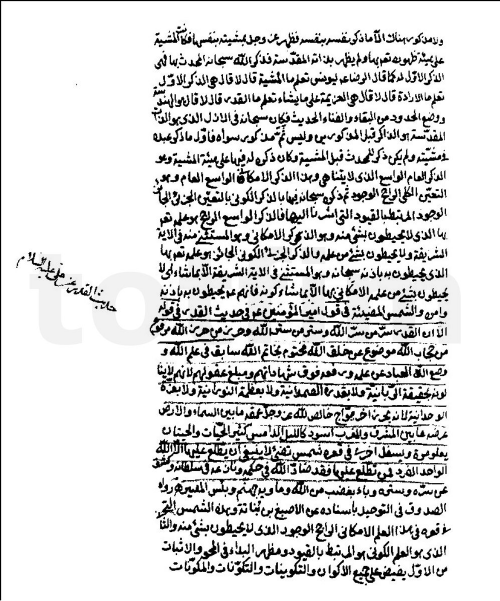 ولا مذكور هناك الا ما ذكر بنفسه بنفسه فظهر عز وجل بمشيته بنفسها فكانت المشية
على هيئة ظهوره تعم بها ولم يظهر بذاته المقدسة فذكر الله سبحانه المحدث بها فهى
الذكر الاول له كما قال الرضا ع ليونس تعلم ما المشية قال لا قال هى الذكر الاول
تعلم ما الارادة قال لا قال هى العزيمة على ما يشاء تعلم ما القدر قال لا قال هو الهندسة
ووضع الحدود من البقاء والفناء الحديث فكان سبحانه فى الازل الذى هو الذات
المقدسة هو الذاكر قبل المذكورين وليس ثمة مذكور سواه فاول ما ذكر عبده
فى مشيته ولم يكن ذكر للمحدث قبل المشية وكان ذكره له فيها على هيئة المشية وهو
الذكر العام الواسع الذى لا يتناهى وهذا الذكر الامكانى الواسع العام وهو
التعين الكلى الراجح الوجود ثم ذكره سبحانه فيها بالذكر الكونى بالتعين الجزئى الجائز
الوجود المرتبط بالقيود التى اشرنا اليها فالذكر الواسع الراجح هو علمه تعم
بها الذى لا يحيطون بشئ منه وهو الذكر الامكانى وهو المستثنى منه فى الاية
الشريفة ولا يحيطون بشئ من علمه والذكر الجزئى الكونى الجائز هو علمه تعم بها
الذى يحيطون به باذنه سبحانه وهو المستثنى فى الاية الشريفة الا بما شاء اى لا
يحيطون بشئ من علمه الامكانى بها الا بما شاء كونه فانهم يحيطون به باذنه
وامره والشمس المضيئة فى قول امير المؤمنين ع فى حديث القدر فى قوله
الا ان القدر سر من سر الله وستر من ستر الله وحرز من حرز الله مرفوع
من حجاب الله موضوع عن خلق الله مختوم بخاتم الله سابق فى علم الله و
وضع الله العباد عن علمه ورفعه فوق شهاداتهم ومبلغ عقولهم لانهم لا ينا
لونه بحقيقة الربانية ولا بقدرة الصمدانية ولا بعظمة النورانية ولا بعزة
الوحدانية لانه بحر زاخر مواج خالص لله عز وجل عمقه ما بين السماء والارض
عرضه ما بين المشرق والمغرب اسود كالليل الدامس كثير الحيات والحيتان
يعلو مرة ويسفل اخرى فى قعره شمس تضئ لا ينبغى ان يطلع عليها الا الله
الواحد الفرد فمن تطلع عليها فقد ضاد الله فى حكمه ونازعه فى سلطانه وكشف
عن سره وستره وباء بغضب من الله ومأويه جهنم وبئس المصير رواه
الصدوق فى التوحيد باسناده عن الاصبغ بن نباتة وهذه الشمس التى
فى قعره هى هذا العلم الامكانى الراجح الوجود الذى لا يحيطون بشئ منه والثا
الذى هو العلم الكونى هو المرتبط بالقيود ومظهر البداء فى المحو والاثبات
من الاول يفيض على جميع الاكوان والتكوينات والتكونات والمكونات
حديث القدر عن على عليه السلام